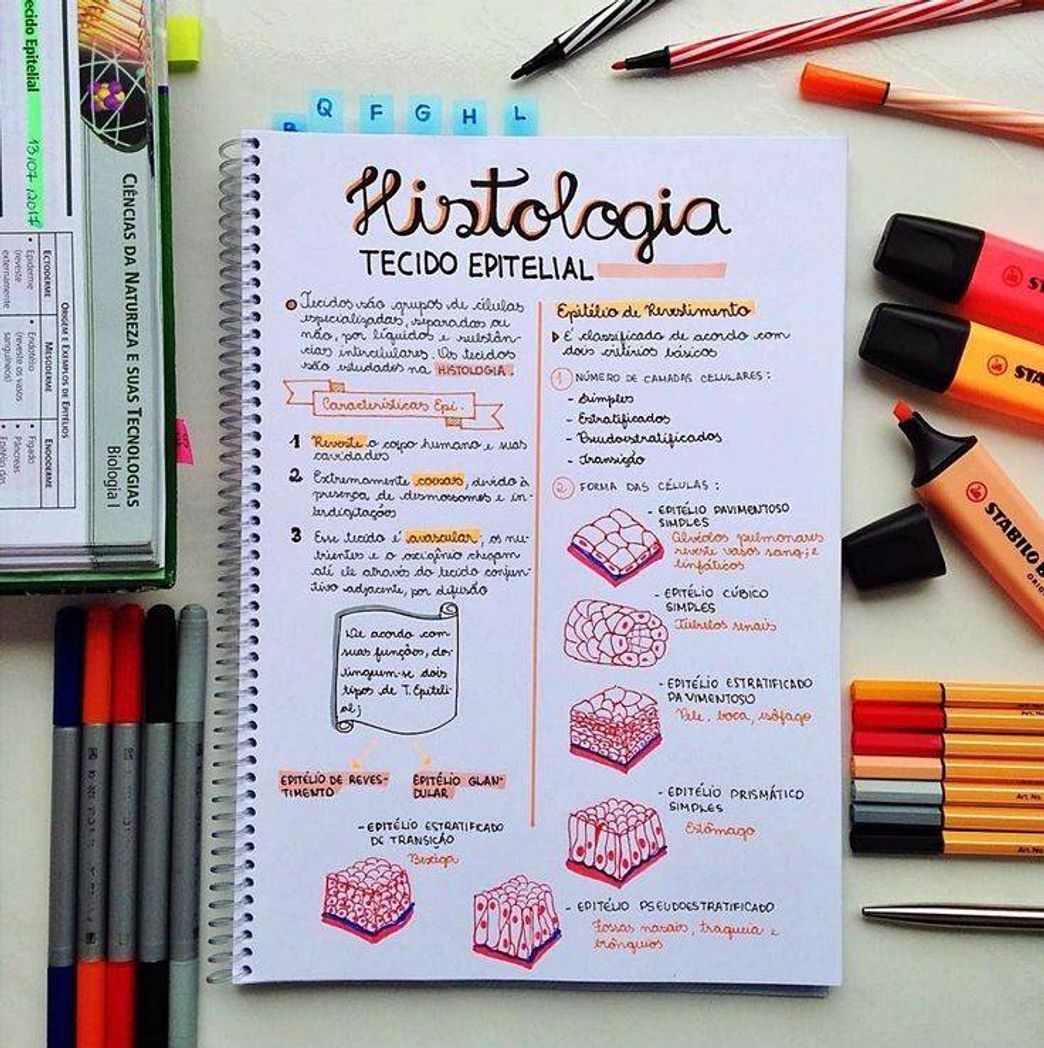 Tecido Epitelial 13/07/2017
CIÊNCIAS DA NATUREZA E SUAS TECNOLOGIAS
Biologia I
ORIGEM E EXEMPLOS DE EPITÉLIOS
ECTODERME
MESODERME
ENDODERME
• Epiderme
(reveste
externamente
• Endotélio
(reveste os vasos
sanguíneos)
• Fígado
• Pâncreas
Q F G H L
Histologia
TECIDO EPITELIAL
Tecidos são grupos de células
especializadas, separadas ou
não, por líquidos e substân-
cias intercelulares. Os tecidos
são estudados na HISTOLOGIA.
Características Epi.
1 Reveste o copo humano e suas
cavidades
2 Extremamente coesas, devido à
presença de desmossomos e in-
terdigitações
3 Esse tecido é avascular, os nu-
trientes e o oxigênio chegam
até ele através do tecido conjun-
tivo adjacente, por difusão
De acordo com
suas funções, dis-
tinguem-se dois
tipos de T. Epiteli-
al;
EPITÉLIO DE REVES-
TIMENTO
EPITÉLIO GLAN-
DULAR
- EPITÉLIO ESTRATIFICADO
DE TRANSIÇÃO
Bexiga
Epitélio de Revestimento
É classificado de acordo com
dois critérios básicos
1 NÚMERO DE CAMADAS CELULARES:
- Simples
- Estratificados
- Pseudoestratificados
- Transição
2 FORMA DAS CÉLULAS:
- EPITÉLIO PAVIMENTOSO
SIMPLES
Alvéolos pulmonares
reveste vasos sang; e
linfáticos
- EPITÉLIO CÚBICO
SIMPLES
Túbulos renais
- EPITÉLIO ESTRATIFICADO
PAVIMENTOSO
Pele, boca, esôfago
- EPITÉLIO PRISMÁTICO
SIMPLES
Estômago
- EPITÉLIO PSEUDOESTRATIFICADO
Fossas nasais, traqueia e
brônquios
STA
STABILO B